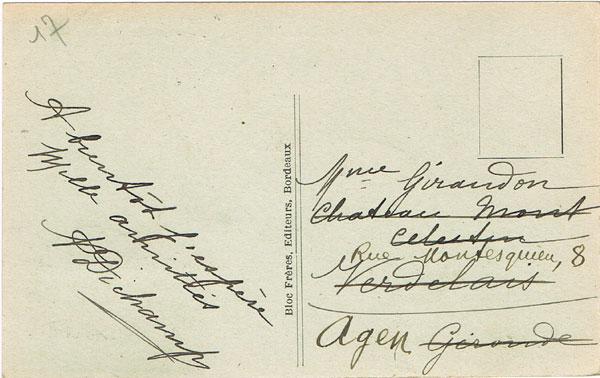 17
A bientôt j'espère
Mille amitiés
Dichamp
Bloc Frères, Editeurs, Bordeaux
Mme Girandon
Chateau Mont
Celestin
Rue Montesquieu, 8
Verdelais
Agen Gironde